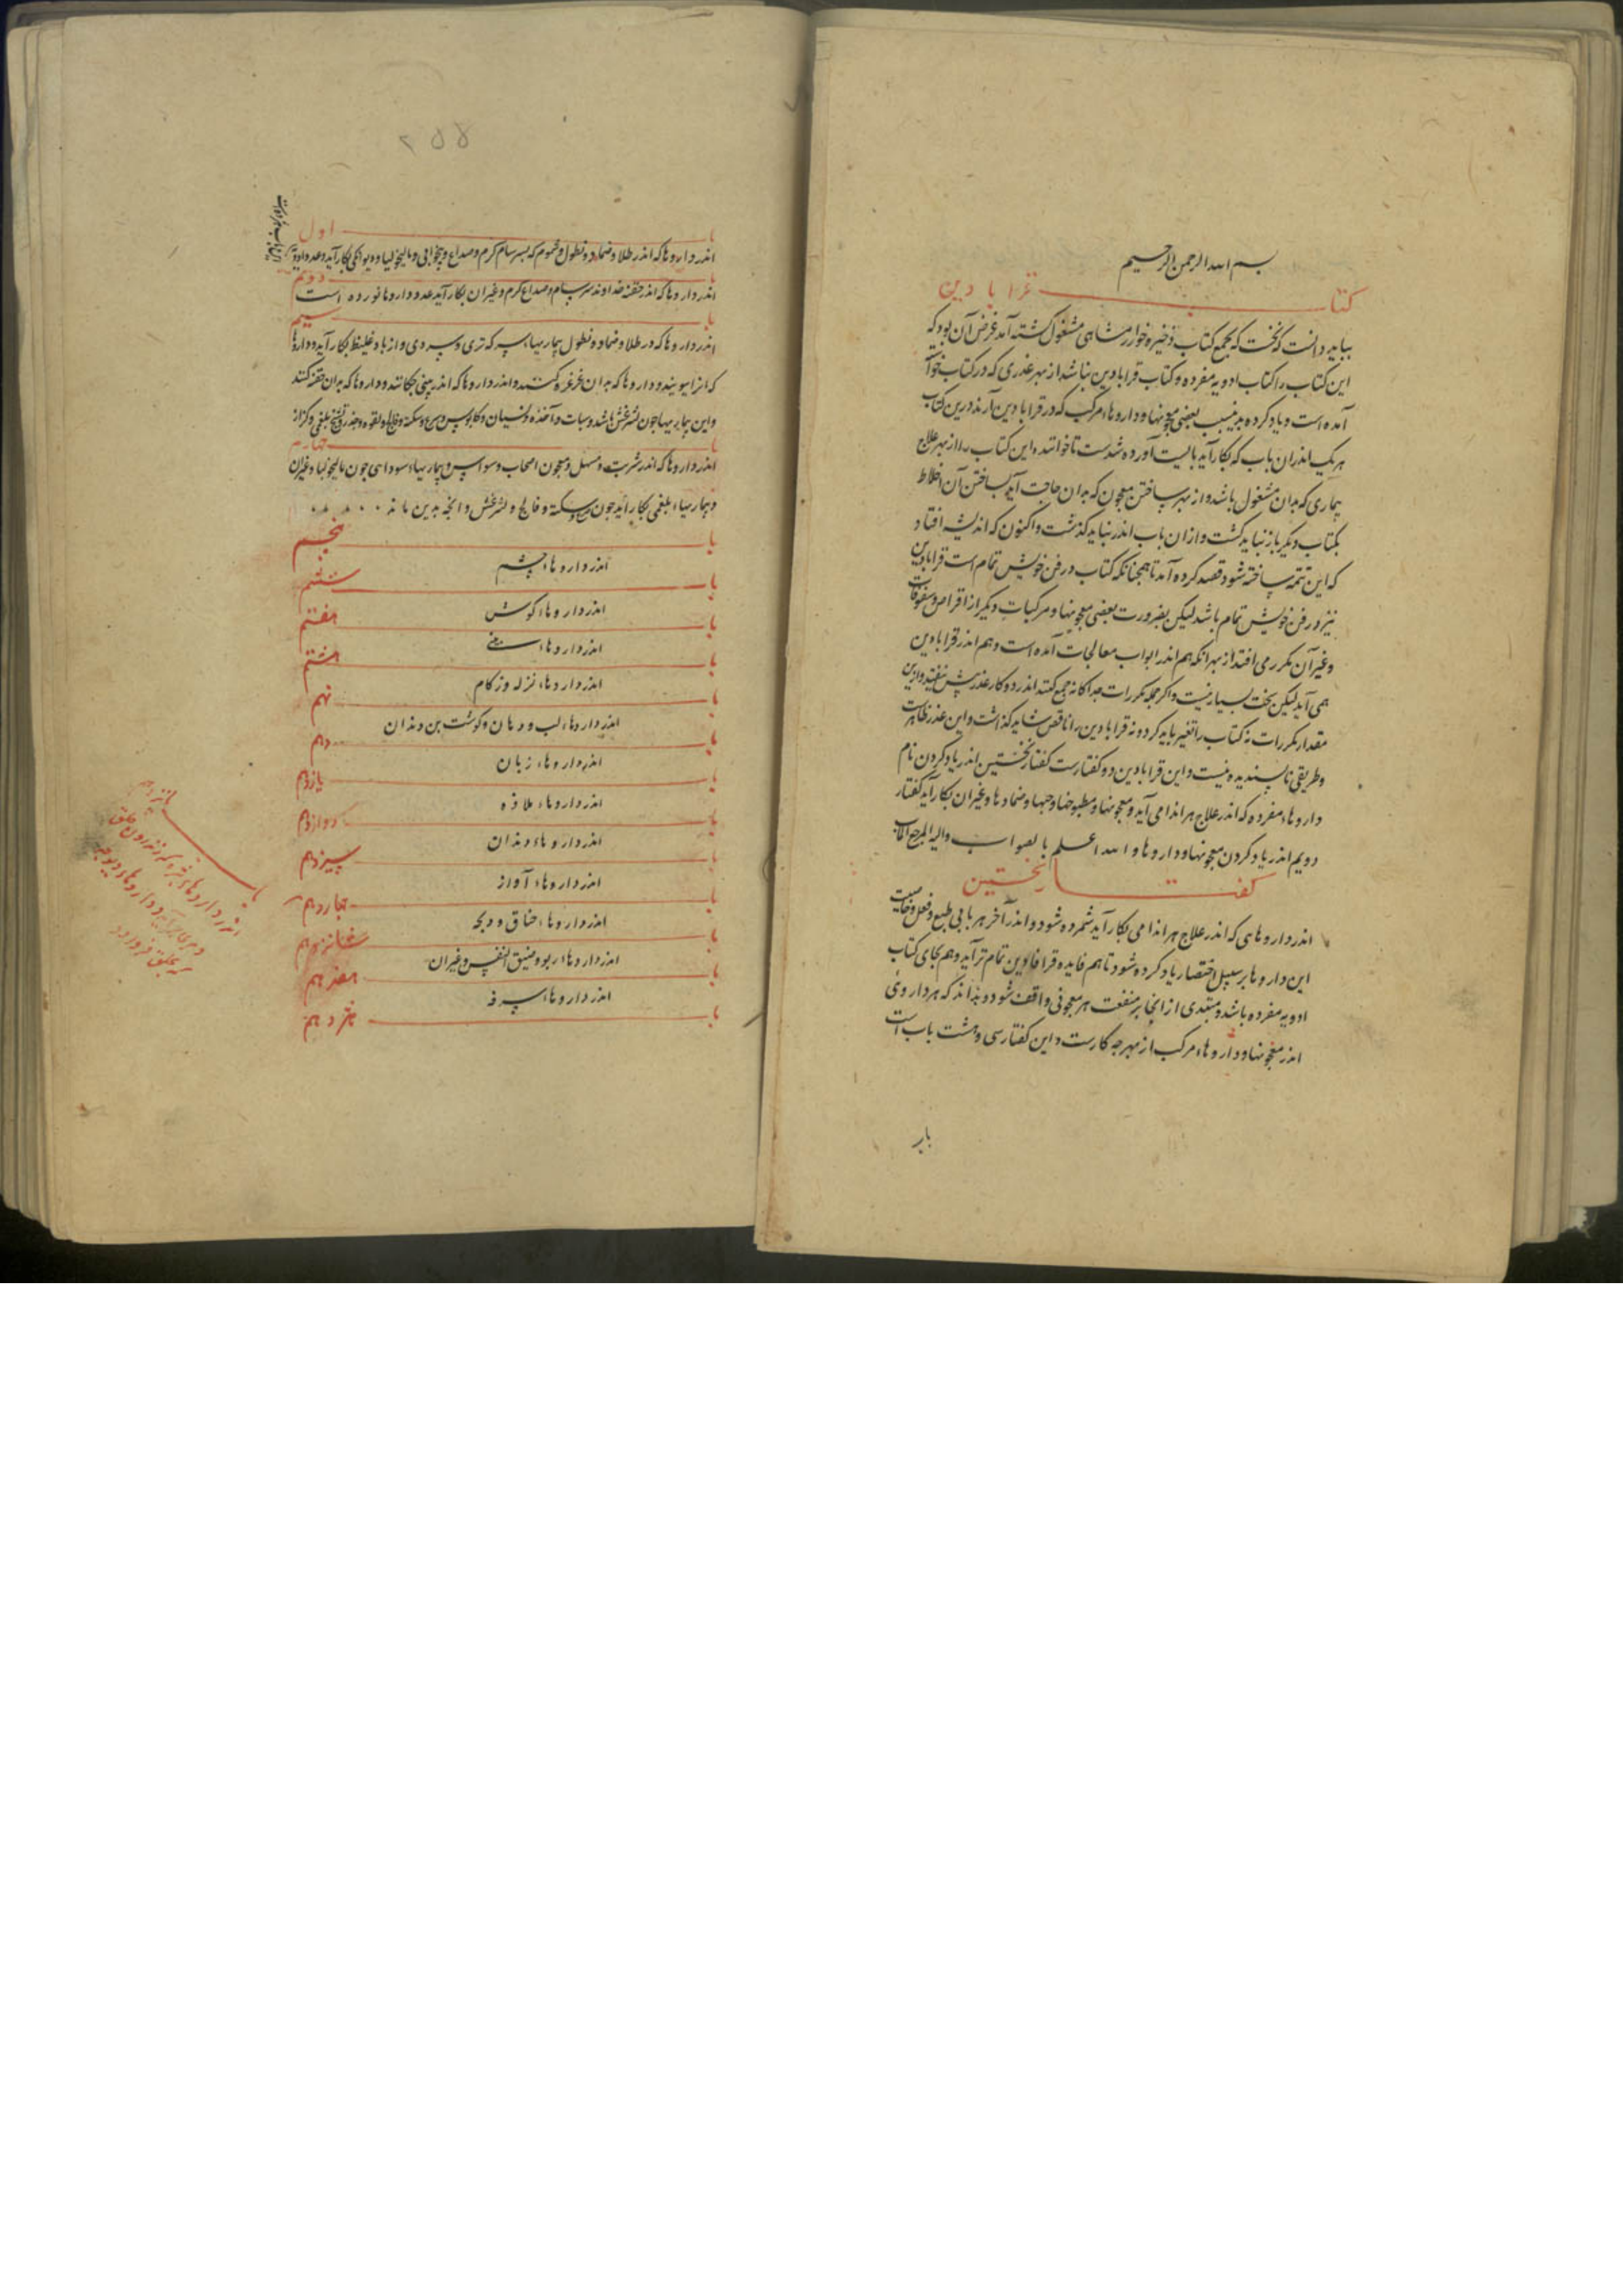 بسم الله الرحمن الرحیم
کتاب قرابادین
بباید دانست که نخست که بجمع کتاب ذخیره خوارزمشاهی مشغول کشته آمد غرض آن بود که
این کتاب را کتاب ادویه مفرده و کتاب قرابادین نباشد از بهر عذری که در کتاب
آمده است و یاد کرده بدین سبب بعضی معجونها و داروهاء مرکب که در قرابادین آرند درین کتاب
هر یک اندران باب که بکار آید بالیست آورده شدست تا خوانندهء این کتاب را از بهر علاج
بیماری که بدان مشغول باشد و از بهر ساختن معجون که بدان حاجت آید بساختن آن اخلاط
بکتاب دیکر باز نباید کشت و ازان باب اندر نباید کذشت و اکنون که اندیشه افتاد
که این تتمه ساخته شود قصد کرده آمد تا همچنانکه کتاب در فن خویش تمام است قرابادین
نیز در فن خویش تمام باشد لیکن بضرورت بعضی معجونها و مرکبات دیکر از اقراص و سفوفات
و غیر آن مکرر می افتد از بهر آنکه هم اندر ابواب معالجات آمده است و هم اندر قرابادین
همی آید لیکن سخت بسیار نیست و اکر جمله مکررات جداکانه جمع کنند اندر دو کاغذ بیش نیفتد و از بهر این
مقدار مکررات نه کتاب را تغییر باید کرد و نه قرابادین را ناقص شاید کذاشت و این عذر ظاهرست
و طریقی ناپسندیده نیست و این قرابادین دو کفتارست کفتار نخستین اندر یاد کردن نام
داروهاء مفرده که اندر علاج هر اندامی آید و معجونها و مطبوخها و حبها و ضمادها و غیر آن بکار آید کفتار
دویم اندر یاد کردن معجونها و داروها و الله اعلم بالصواب و الیه المرجع و المآب
کفتار نخستین
اندر داروهایی که اندر علاج هر اندامی بکار آید شمرده شود و اندر آخر هر بابی طبع و فعل و خاصیت
این داروها بر سبیل اختصار یاد کرده شود تا هم فایده قرابادین تمام تر آید و هم بجای کتاب
ادویه مفرده باشد و مبتدی از انجا بر منفعت هر معجونی واقف شود و بداند که هر داروئی
اندر معجونها و داروهاء مرکب از بهر چه کارست و این کفتار سی و هشت باب است
باب
۲۵۵
باب اول
اندر داروها که اندر طلا و ضماد و نطول و شموم که بسرسام کرم و صداع و بیخوابی و مالیخولیا و دیوانکی بکار آید و عدد ادویه
باب دوم
اندر داروها که اندر حقنه خداوند سرسام و صداع کرم و غیر آن بکار آید عدد داروها نوزده است
باب سیم
اندر داروها که در طلا و ضماد و نطول بیماریهاء سر که تری و سردی و از باد غلیظ بکار آید و داروها
که انرا ببویند و داروها که بدان غرغره کنند و اندر داروها که اندر بینی چکانند و داروها که بدان حقنه کنند
و این بیماریها چون لیثرغش باشد و سبات و آخذه و نسیان و کابوس و صرع و سکته و فالج و لقوه و خدر و تشنج بلغمی و کزاز
باب چهارم
اندر داروها که اندر شربت و مسهل و معجون اصحاب وسواس و بیماریهاء سودایی چون مالیخولیا و غیر آن
و بیماریهاء بلغمی بکار آید چون صرع و سکته و فالج و لیثرغش و انچه بدین ماند
باب پنجم
اندر داروهاء چشم
باب ششم
اندر داروهاء کوش
باب هفتم
اندر داروهاء بینی
باب هشتم
اندر داروهاء نزله و زکام
باب نهم
اندر داروهاء لب و دهان و کوشت بن دندان
باب دهم
اندر داروهاء زبان
باب یازدهم
اندر داروهاء ملاذه
باب دوازدهم
اندر داروهاء دندان
باب سیزدهم
اندر داروهاء آواز
باب چهاردهم
اندر داروهاء خناق و ذبحه
باب شانزدهم
اندر داروهاء ربو و ضیق النفس و غیر آن
باب هفدهم
اندر داروهاء سرفه
باب هژدهم
باب پانزدهم